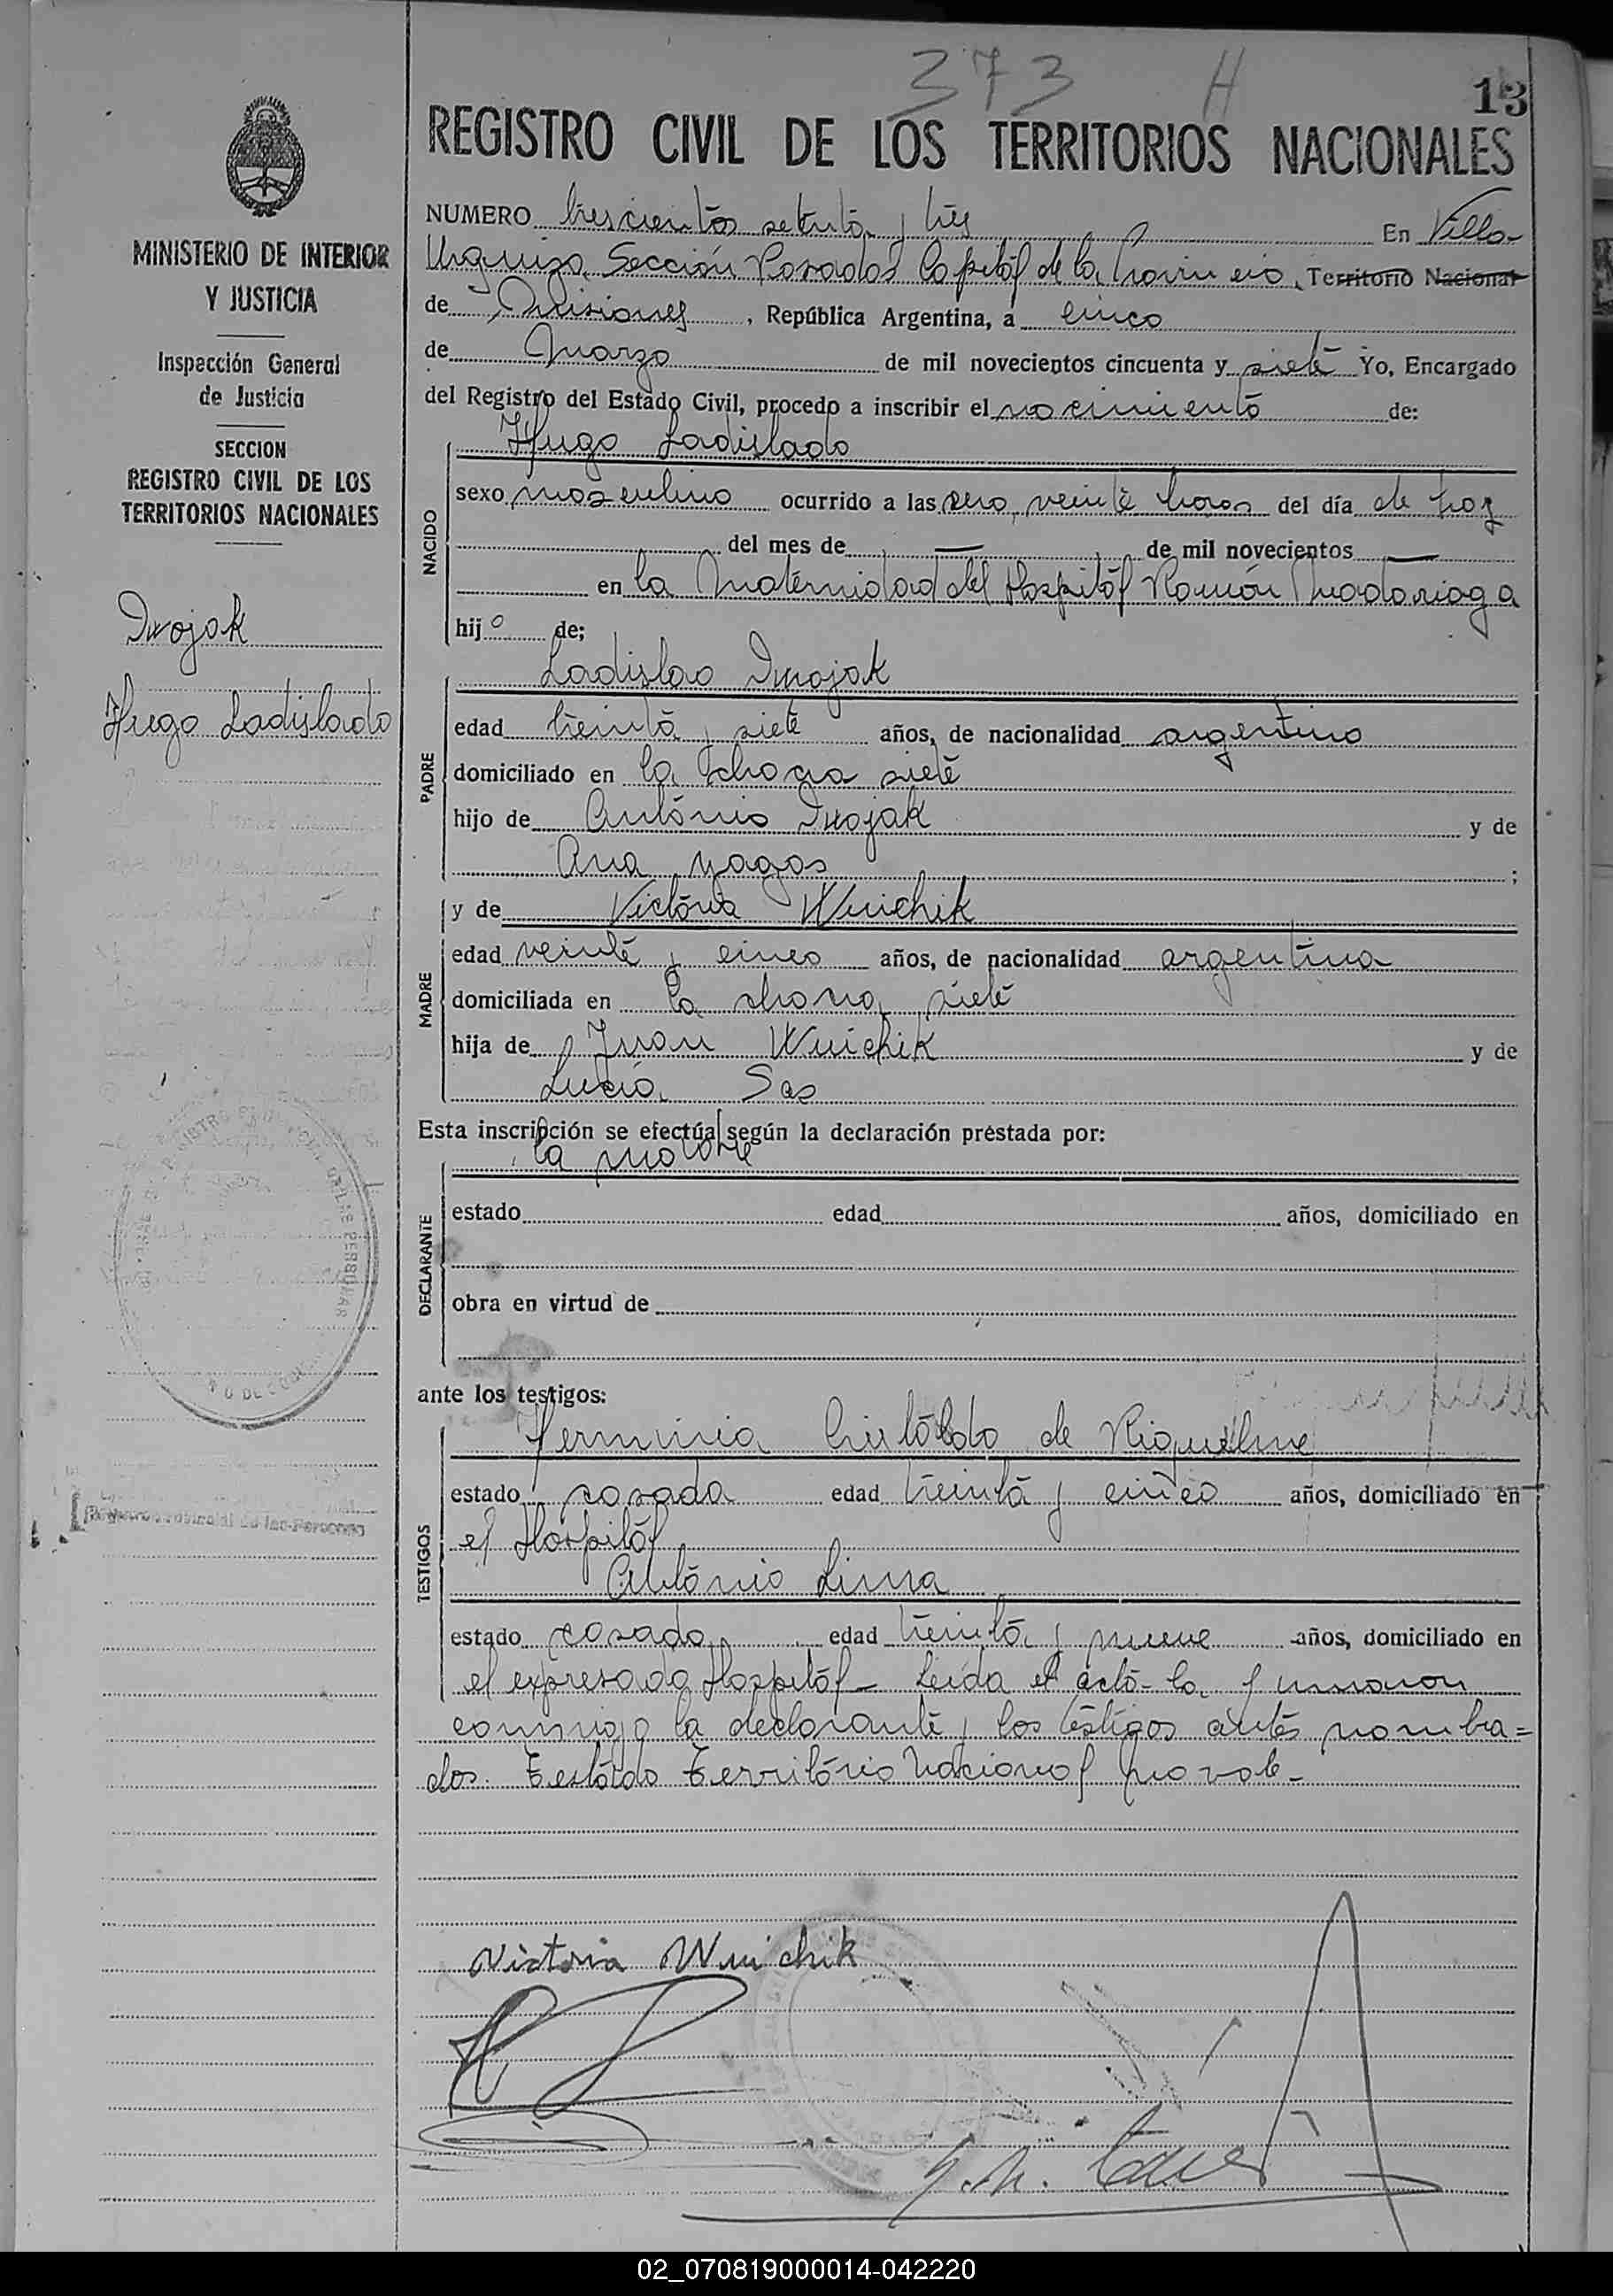 373 H
13
REGISTRO CIVIL DE LOS TERRITORIOS NACIONALES
MINISTERIO DE INTERIOR
Y JUSTICIA
Inspección General
de Justicia
SECCION
REGISTRO CIVIL DE LOS
TERRITORIOS NACIONALES
Hugo Ladislado
NUMERO trescientos setenta y tres En Villa
Urquiza Sección Posadas Capital de la Provincia, Territorio Nacional
de Misiones, República Argentina, a cinco
de Marzo de mil novecientos cincuenta y siete Yo, Encargado
del Registro del Estado Civil, procedo a inscribir el nacimiento de:
NACIDO
Hugo Ladislado
sexo masculino ocurrido a las cero, veinte horas del día de hoy
del mes de — de mil novecientos —
en la Maternidad del Hospital Ramón Madariaga
hijo de;
PADRE
Ladislao
edad treinta y siete años, de nacionalidad argentino
domiciliado en la chacra siete
hijo de Antonio y de
Ana ;
MADRE
y de Victoria Wuichik
edad veinte y cinco años, de nacionalidad argentina
domiciliada en la chacra siete
hija de Juan Wuichik y de
Lucía Sas
Esta inscripción se efectúa según la declaración prestada por:
DECLARANTE
la madre
estado edad años, domiciliado en
obra en virtud de
ante los testigos:
TESTIGOS
Herminia de Riquelme
estado casada edad treinta y cinco años, domiciliado en
el Hospital
Antonio Lima
estado casado edad treinta y nueve años, domiciliado en
el expresado Hospital - Leída el acta la firmaron
conmigo la declarante y los testigos antes nombra=
dos. Testado Territorio Nacional no vale-
Victoria Wuichik
02_070819000014-042220